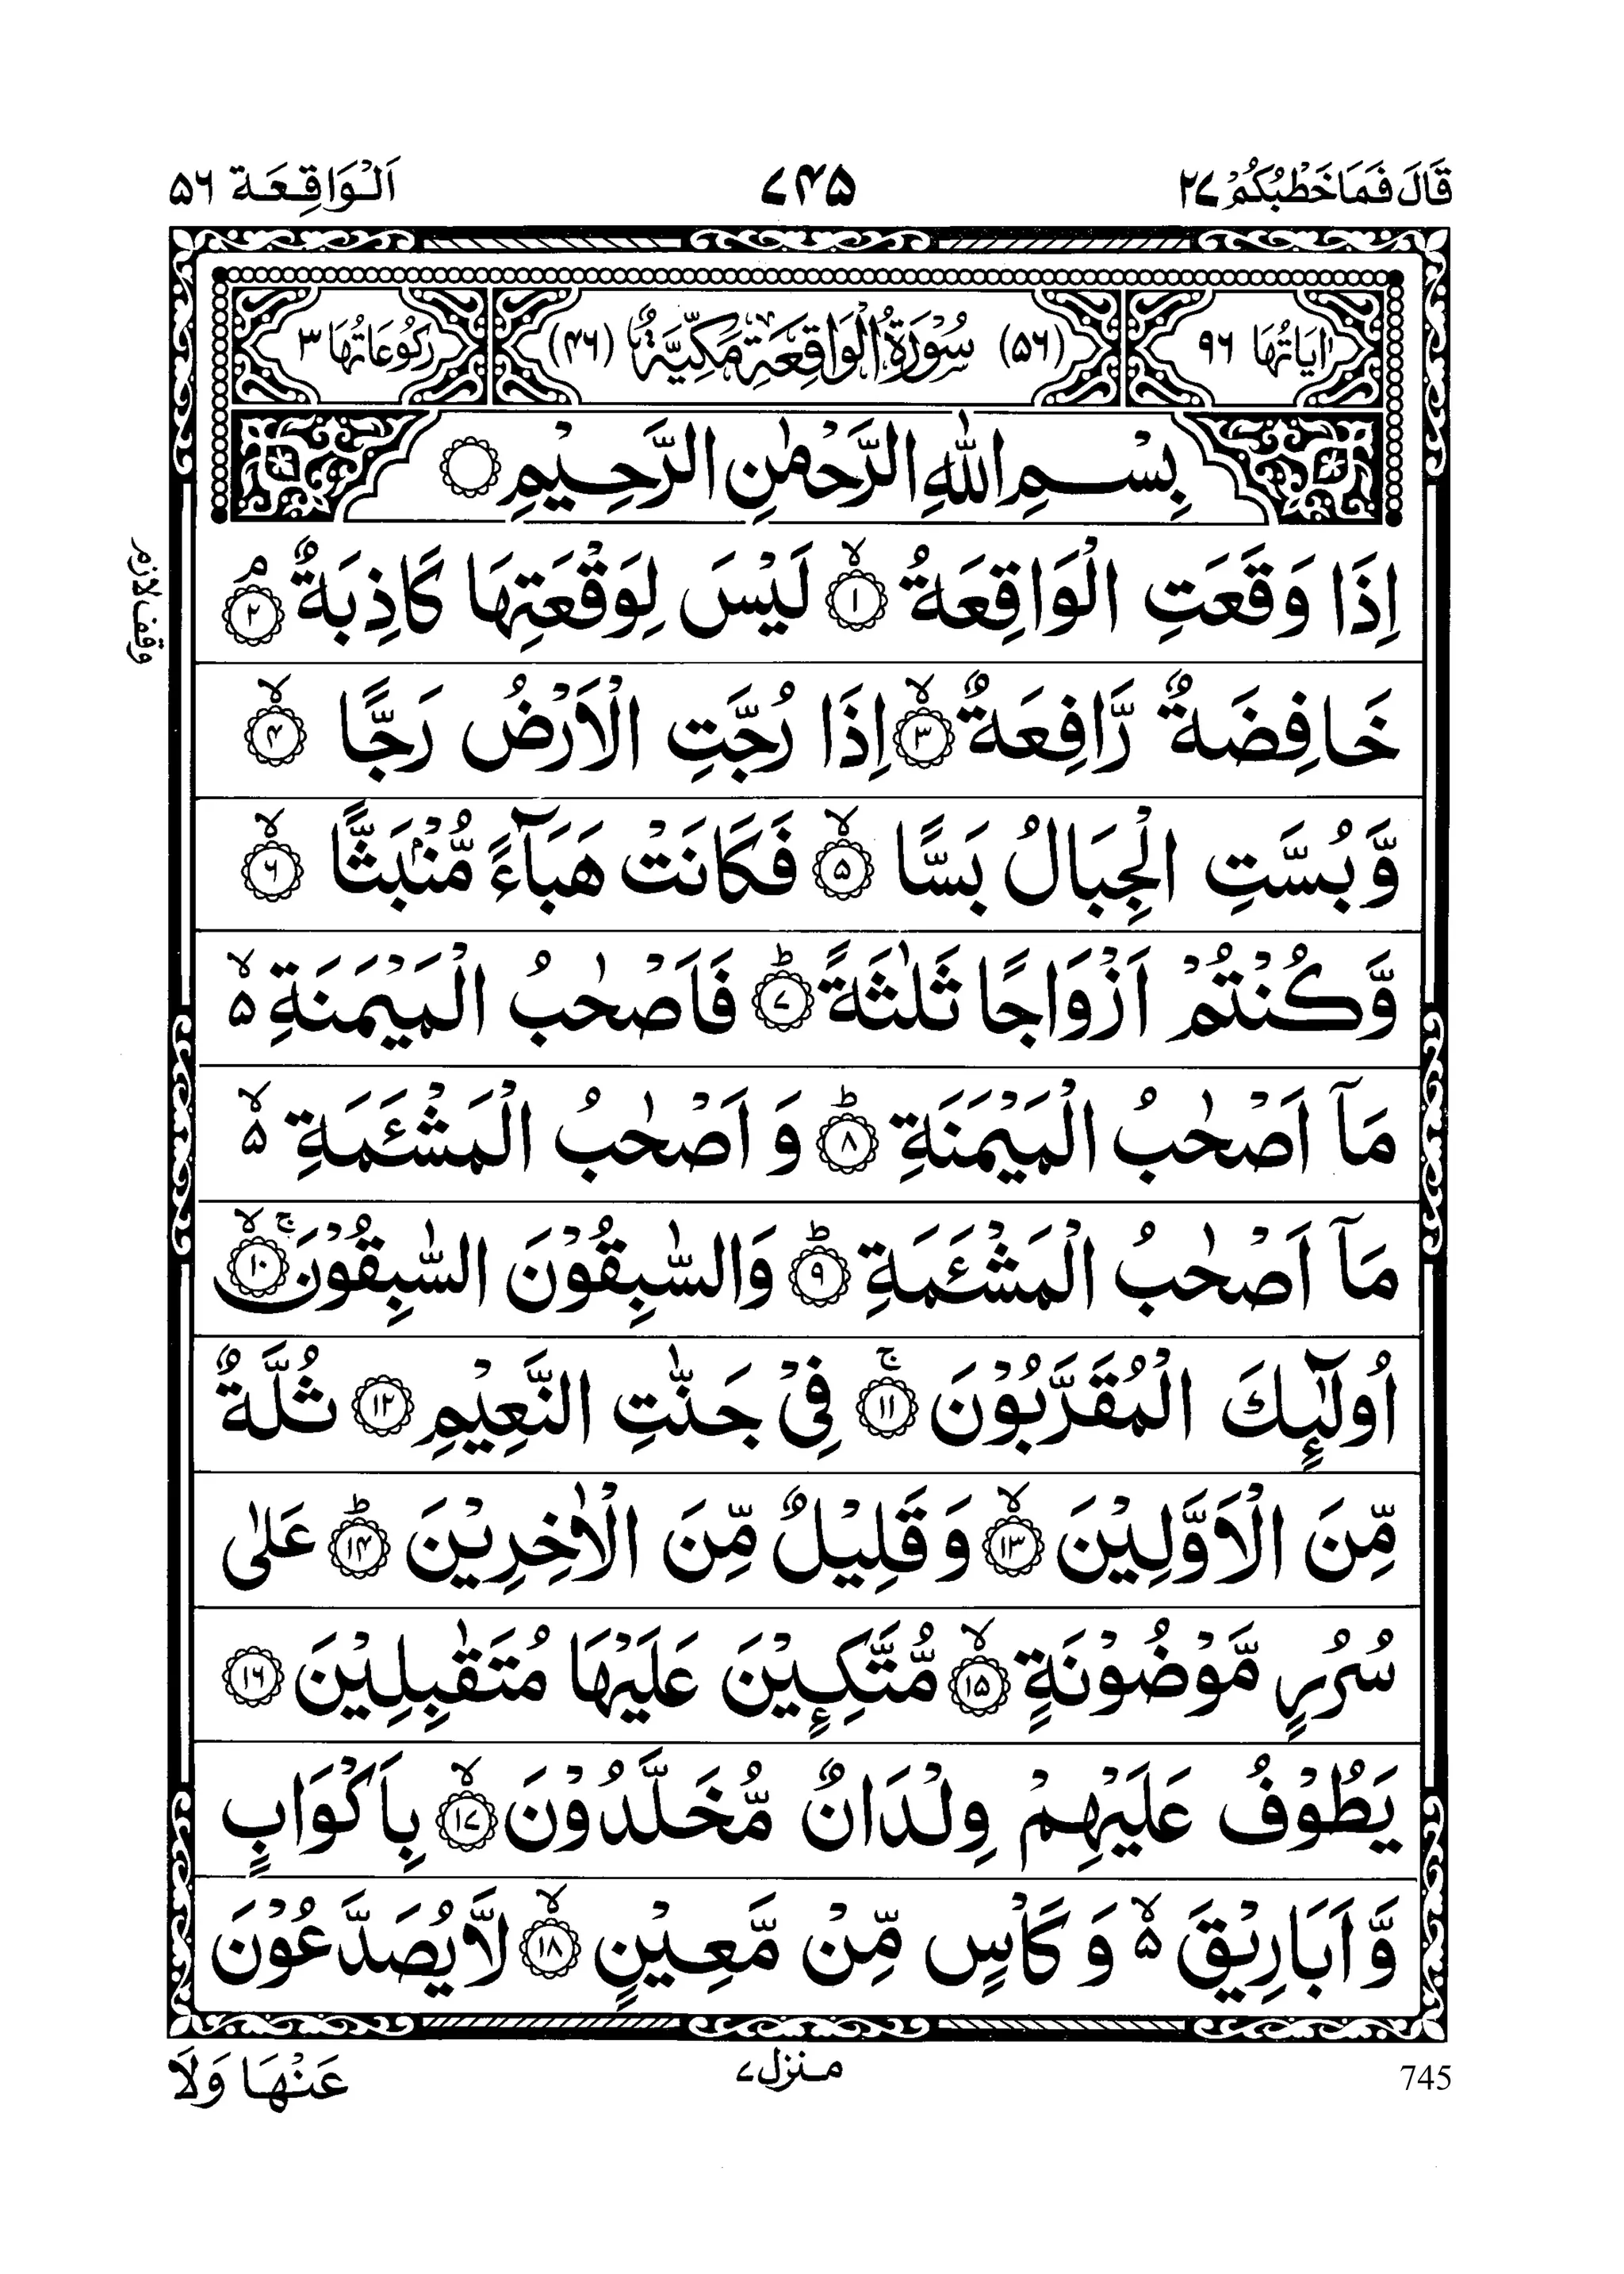 قَالَ فَمَا خَطْبُكُمْ ۲۷ ۷۴۵ اَلْوَاقِعَة ۵۶
اٰيَاتُهَا ۹۶ (۵۶) سُوْرَةُ الْوَاقِعَةِ مَكِّيَّةٌ (۴۶) رُكُوْعَاتُهَا ۳
بِسْمِ اللّٰهِ الرَّحْمٰنِ الرَّحِيْمِ ۝
اِذَا وَقَعَتِ الْوَاقِعَةُ ۙ﴿۱﴾ لَيْسَ لِوَقْعَتِهَا كَاذِبَةٌ ۘ﴿۲﴾
وقف لازم
خَافِضَةٌ رَّافِعَةٌ ۙ﴿۳﴾ اِذَا رُجَّتِ الْاَرْضُ رَجًّا ۙ﴿۴﴾
وَّبُسَّتِ الْجِبَالُ بَسًّا ۙ﴿۵﴾ فَكَانَتْ هَبَآءً مُّنْۢبَثًّا ۙ﴿۶﴾
وَّكُنْتُمْ اَزْوَاجًا ثَلٰثَةً ؕ﴿۷﴾ فَاَصْحٰبُ الْمَيْمَنَةِ ۙ۵
مَآ اَصْحٰبُ الْمَيْمَنَةِ ؕ﴿۸﴾ وَ اَصْحٰبُ الْمَشْـَٔمَةِ ۙ۵
مَآ اَصْحٰبُ الْمَشْـَٔمَةِ ؕ﴿۹﴾ وَالسّٰبِقُوْنَ السّٰبِقُوْنَ ۚۙ﴿۱۰﴾
اُولٰٓئِكَ الْمُقَرَّبُوْنَ ۚ﴿۱۱﴾ فِيْ جَنّٰتِ النَّعِيْمِ ﴿۱۲﴾ ثُلَّةٌ
مِّنَ الْاَوَّلِيْنَ ۙ﴿۱۳﴾ وَقَلِيْلٌ مِّنَ الْاٰخِرِيْنَ ؕ﴿۱۴﴾ عَلٰى
سُرُرٍ مَّوْضُوْنَةٍ ۙ﴿۱۵﴾ مُّتَّكِـِٕيْنَ عَلَيْهَا مُتَقٰبِلِيْنَ ﴿۱۶﴾
يَطُوْفُ عَلَيْهِمْ وِلْدَانٌ مُّخَلَّدُوْنَ ۙ﴿۱۷﴾ بِاَكْوَابٍ
وَّاَبَارِيْقَ ۙ۵ وَكَاْسٍ مِّنْ مَّعِيْنٍ ۙ﴿۱۸﴾ لَّا يُصَدَّعُوْنَ
745 منزل ۷ عَنْهَا وَلَا